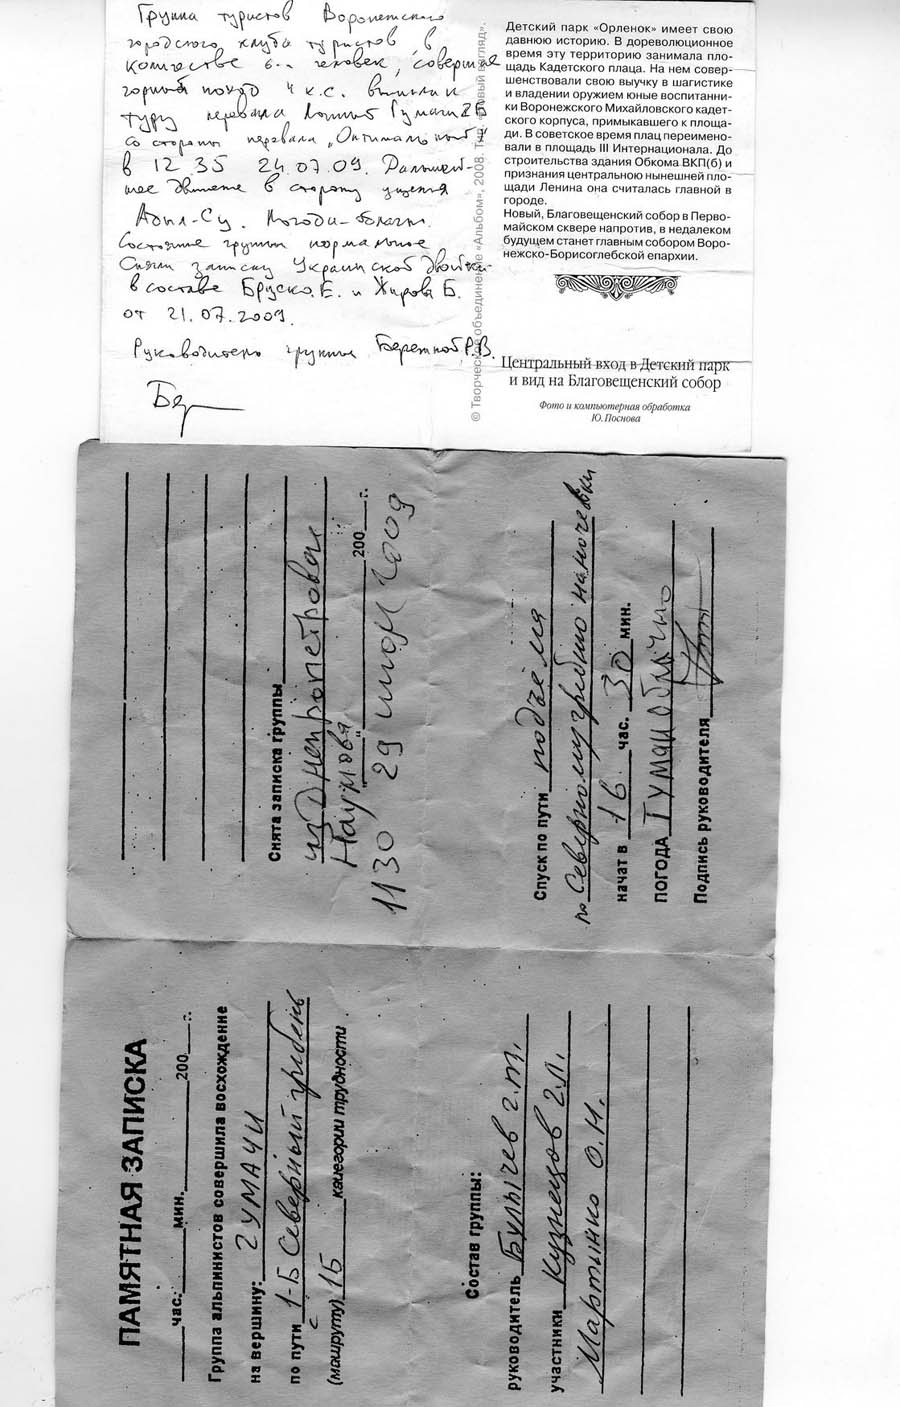 Группа туристов Воронежского
городского клуба туристов в
количестве 6 человек, совершая
горный поход 4 к.с. вышли к
туру перевала Ложный Гумачи 2Б
со стороны перевала „Оптимальный"
в 12 35 24.07.09. Дальней-
шее движение в сторону ущелья
Адыл-Су. Погода-
Состояние группы нормальное
Сняли записку Украинской двойки
в составе Бруско Е. и Жирова Б.
от 21.07.2009.
Руководитель группы Бережной Р.В.
© Творческое объединение «Альбом», 2008. Тел. «Новый взгляд».
Детский парк «Орленок» имеет свою
давнюю историю. В дореволюционное
время эту территорию занимала пло-
щадь Кадетского плаца. На нем совер-
шенствовали свою выучку в шагистике
и владении оружием юные воспитанни-
ки Воронежского Михайловского кадет-
ского корпуса, примыкавшего к площа-
ди. В советское время плац переимено-
вали в площадь III Интернационала. До
строительства здания Обкома ВКП(б) и
признания центральною нынешней пло-
щади Ленина она считалась главной в
городе.
Новый, Благовещенский собор в Перво-
майском сквере напротив, в недалеком
будущем станет главным собором Воро-
нежско-Борисоглебской епархии.
Центральный вход в Детский парк
и вид на Благовещенский собор
Фото и компьютерная обработка
Ю. Поснова
ПАМЯТНАЯ ЗАПИСКА
час. мин. 200 г.
Группа альпинистов совершила восхождение
на вершину: ГУМАЧИ
по пути 1-Б Северный гребень
с
(маршруту) 1Б категории трудности
Состав группы:
руководитель Булычев Г.Т.
участники Кузнецов Г.Л.
Мартинко О.Н.
Снята записка группы
из Днепропетровска
Наумова
" 200 г.
1130 29 июля 2009
Спуск по пути подъема
по Северному гребню на ночевки
начат в 16 час. 30 мин.
погода Туман облачно
Подпись руководителя